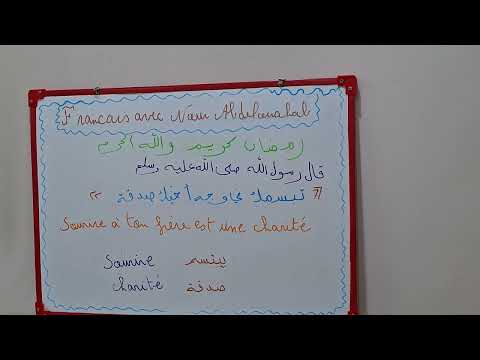 Francais avec Naim Abdelouahab
رمضان كريم والله اكرم
قال رسول الله صلى الله عليه وسلم
« تبسمك في وجه أخيك صدقة »
Sourire à ton frère est une charité
Sourire يبتسم
charité صدقة